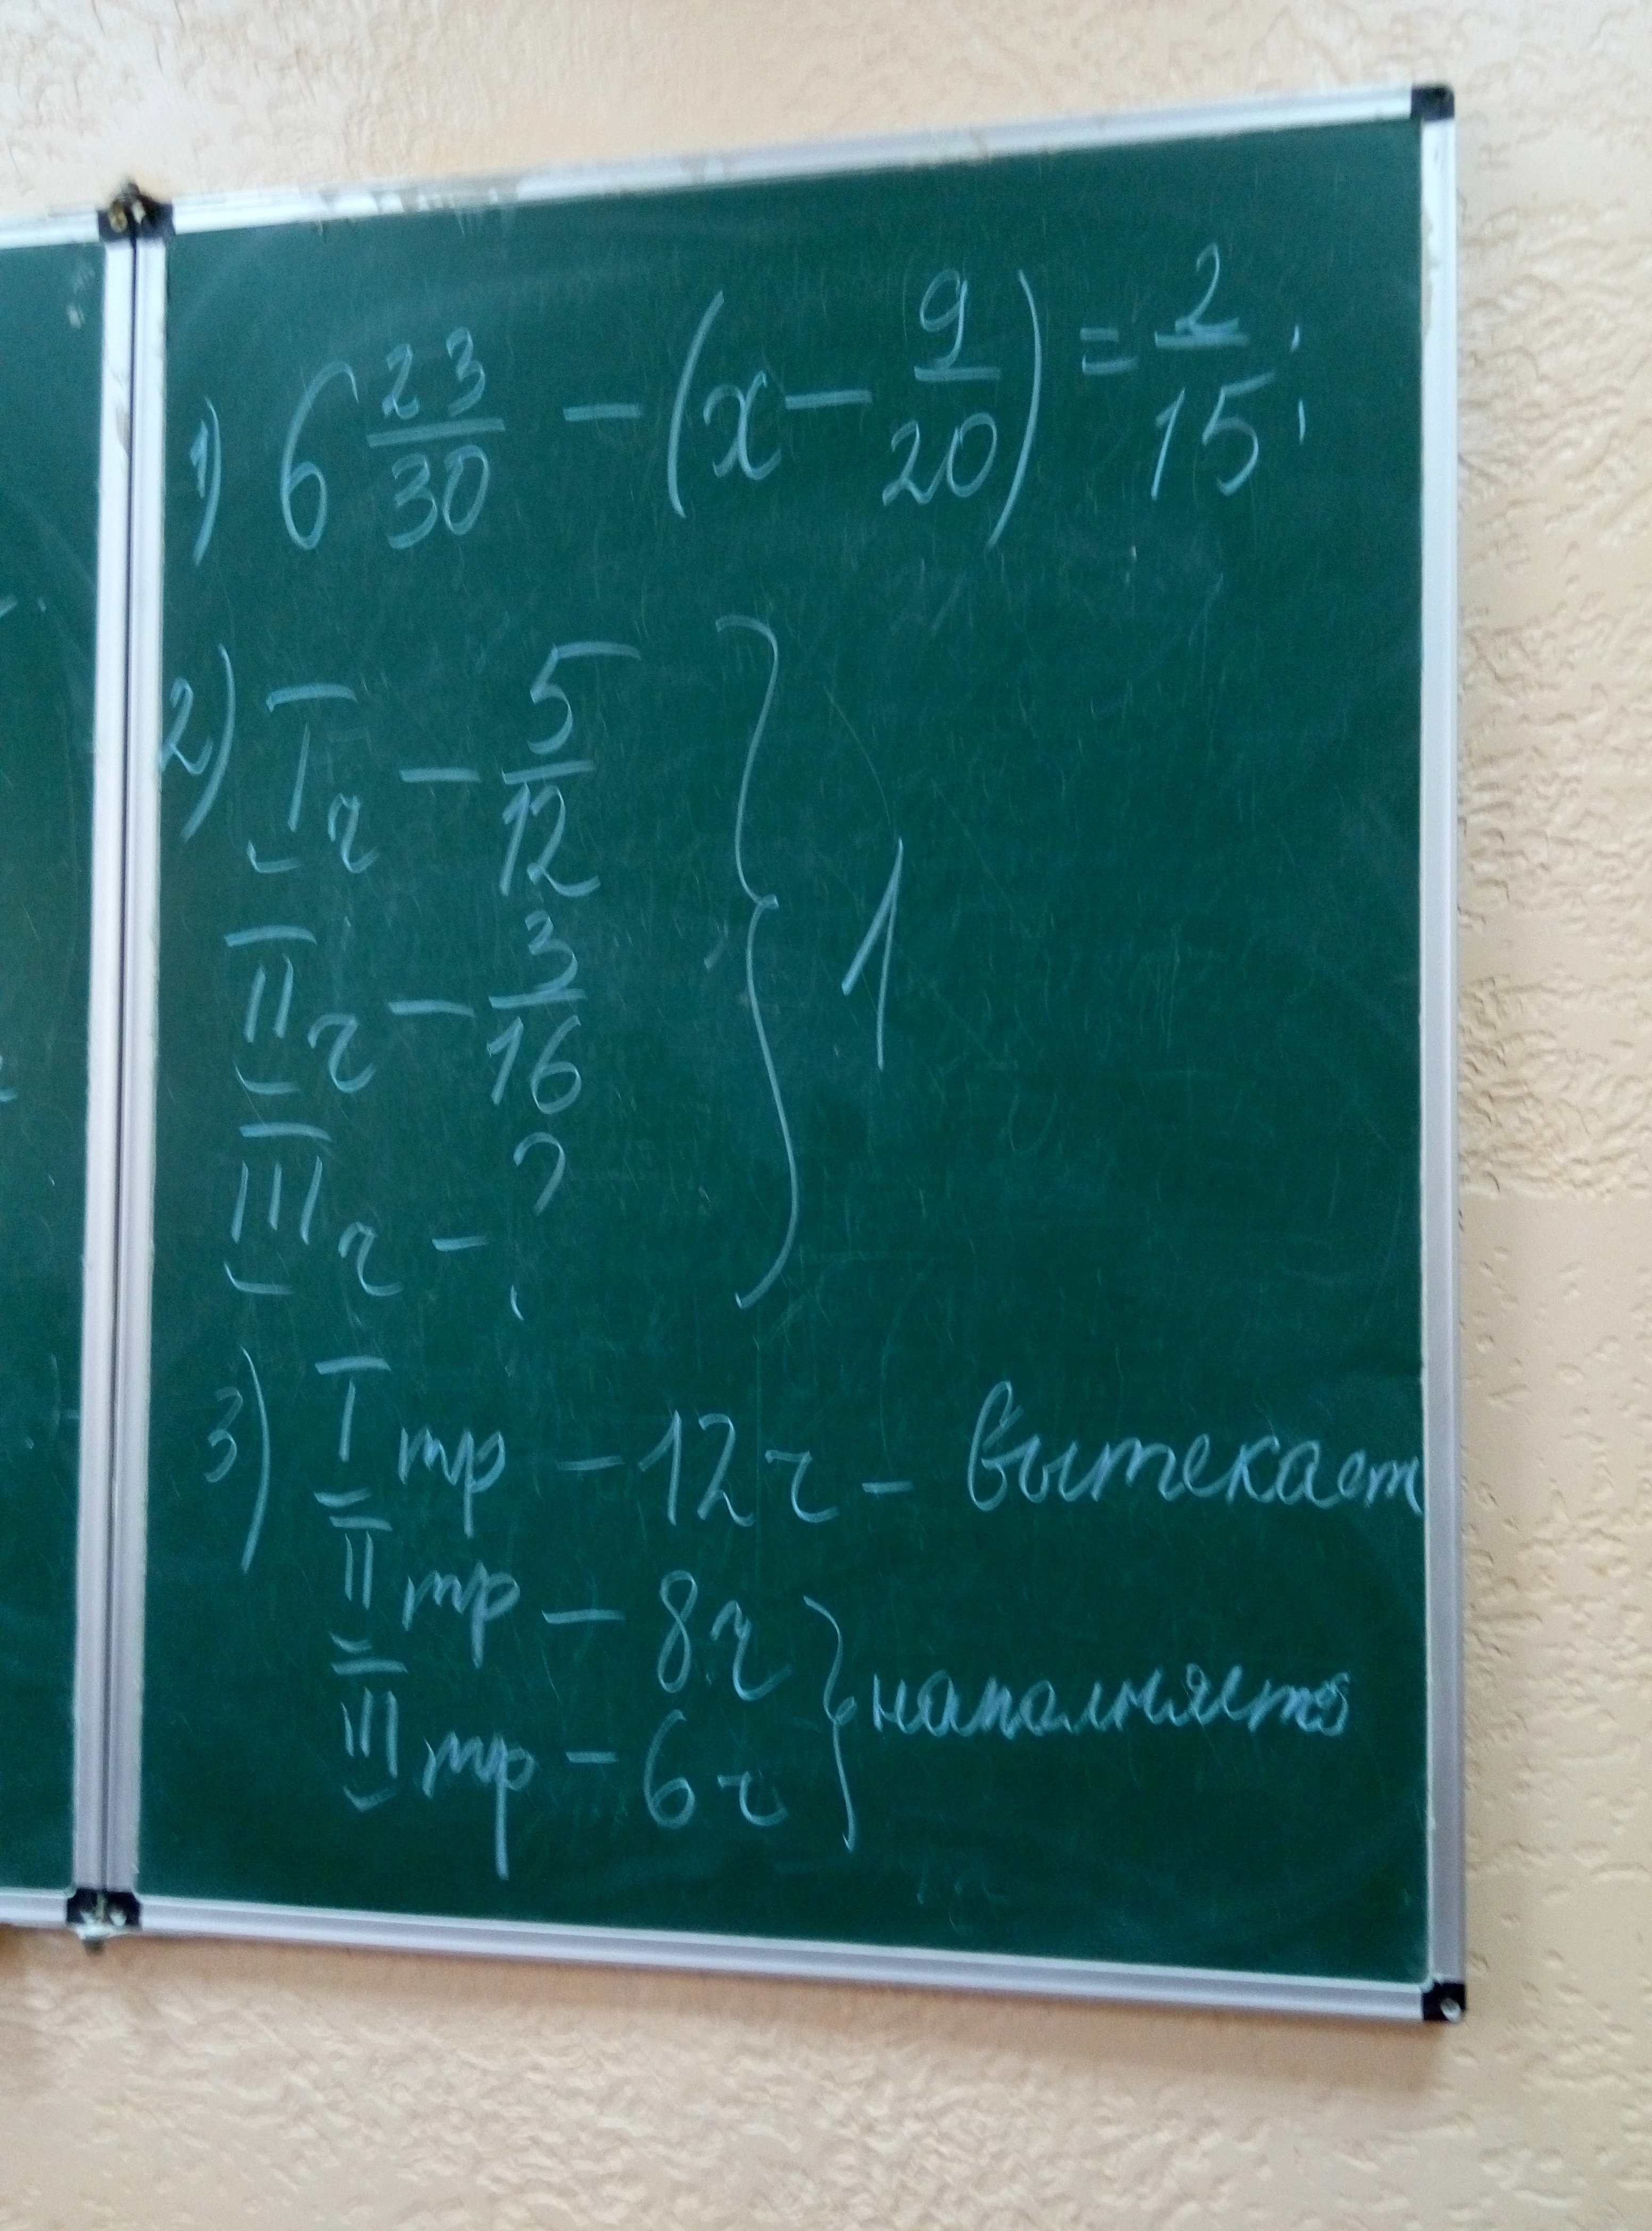 1) 6 23/30 - (x - 9/20) = 2/15;
2) I ч - 5/12
II ч - 3/16
III ч - ?
} 1
3) I тр - 12 ч - вытекает
II тр - 8 ч
III тр - 6 ч
} наполняется